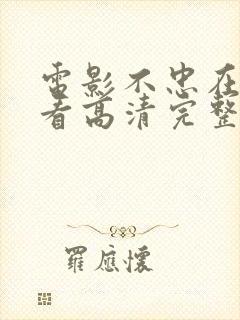 電影不忠在
看高清完整
羅應懷